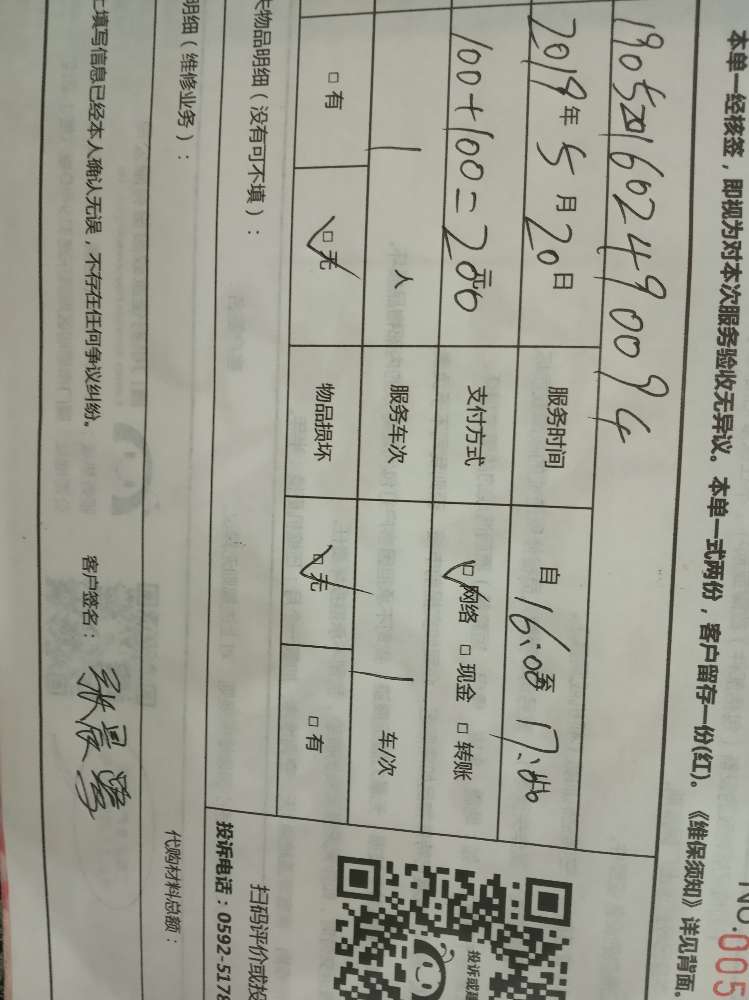 NO.005
本单一经核签，即视为对本次服务验收无异议。本单一式两份，客户留存一份(红)。《维保须知》详见背面。
2019年5月20日 服务时间 自16:00至17:00
100+100=200元 支付方式 网络 现金 转账
1人 服务车次 1车/次
有 无 物品损坏 无 有
投诉或建
扫码评价或投
物品明细（没有可不填）：
投诉电话：0592-5178
明细（维修业务）：
代购材料总额：
填写信息已经本人确认无误，不存在任何争议纠纷。 客户签名：